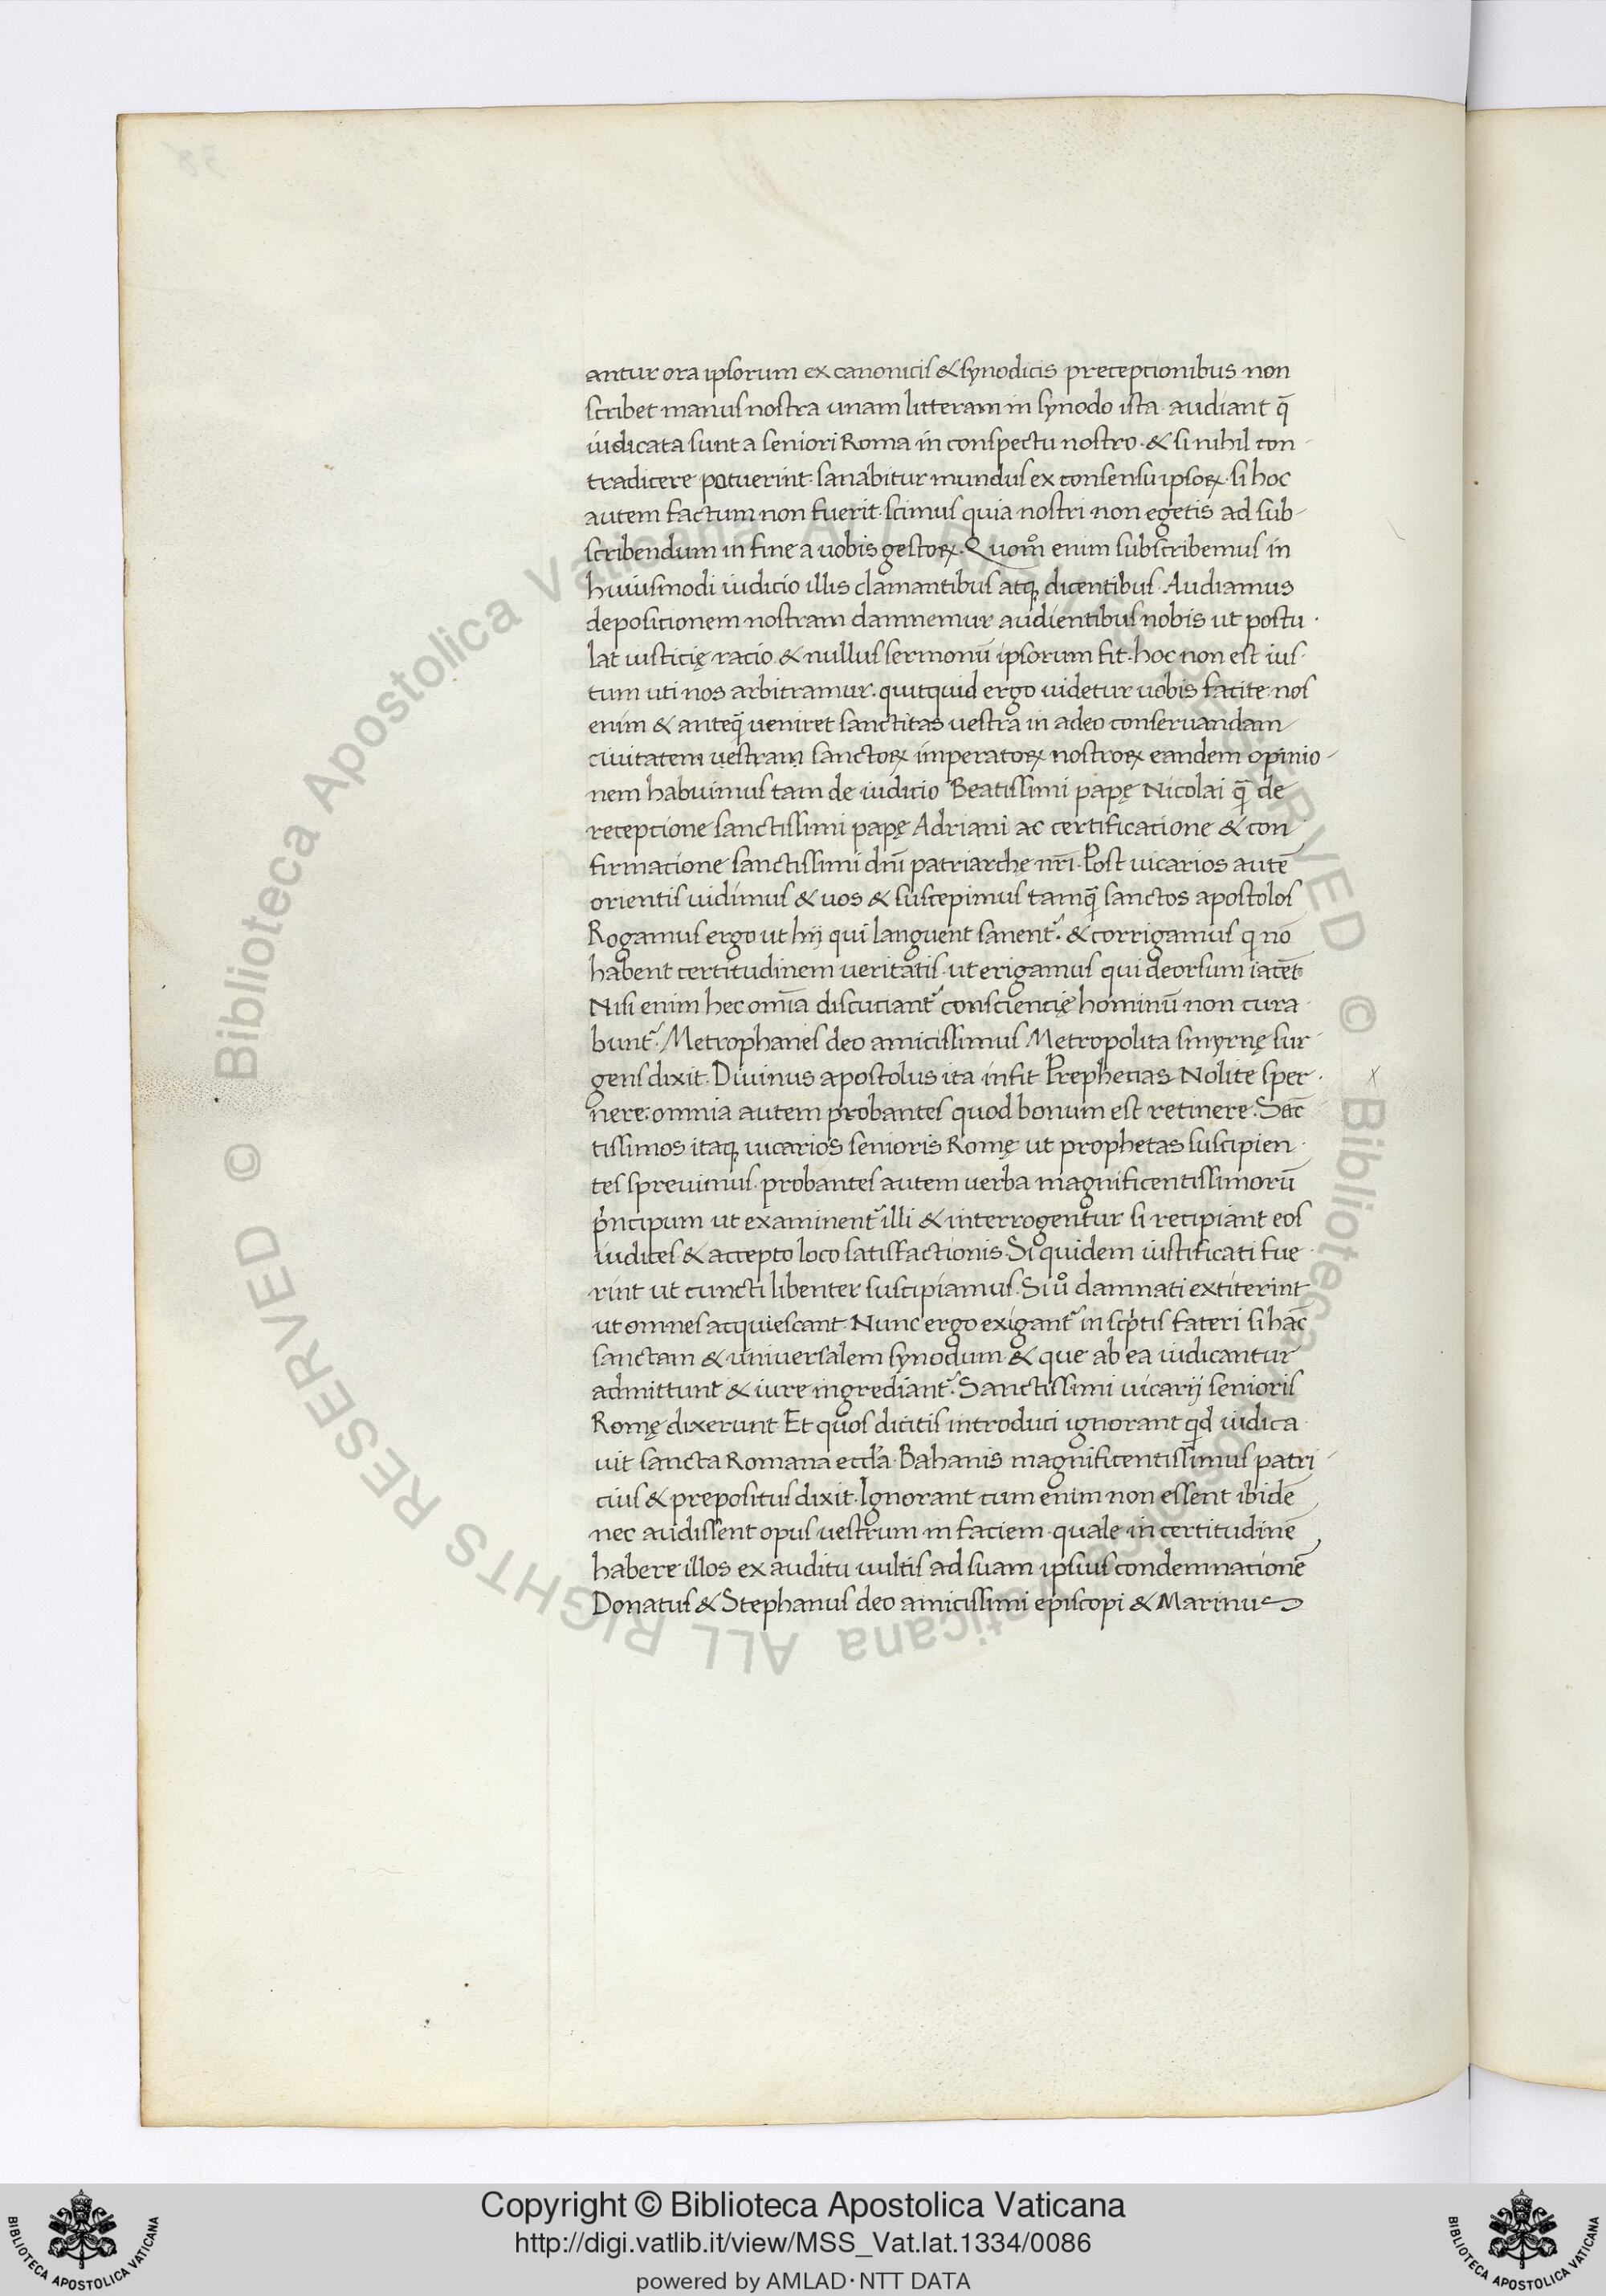 antur ora ipsorum ex canonicis & synodicis preceptionibus non
scribet manus nostra unam litteram in synodo ista. audiant q̄
iudicata sunt a seniori Roma in conspectu nostro. & si nihil con-
tradicere potuerint: sanabitur mundus ex consensu ipsoꝝ. si hoc
autem factum non fuerit. scimus quia nostri non egetis ad sub-
scribendum in fine a uobis gestoꝝ. Quom̊ enim subscribemus in
huiusmodi iudicio illis clamantibus atq; dicentibus. Audiamus
depositionem nostram damnemur audientibus nobis ut postu-
lat iusticię racio. & nullus sermonū ipsorum fit. hoc non est ius-
tum uti nos arbitramur. quitquid ergo uidetur uobis facite. nos
enim & anteq̄ ueniret sanctitas uestra in adeo conseruandam
ciuitatem uestram sanctoꝝ imperatoꝝ nostroꝝ eandem opinio-
nem habuimus tam de iudicio Beatissimi papę Nicolai q̄ de
receptione sanctissimi papę Adriani ac certificacione & con-
firmacione sanctissimi dn̄i patriarchę nr̄i. Post uicarios autē
orientis uidimus & uos & suscepimus tamq̄ sanctos apostolos
Rogamus ergo ut hij qui languent sanent᷑. & corrigamus q nō
habent certitudinem ueritatis. ut erigamus qui deorsum iacēt.
Nisi enim hec om̄ia discuciant᷑ consciencię hominū non cura-
bunt᷑. Metrophanes deo amicissimus Metropolita smyrnę sur-
gens dixit. Diuinus apostolus ita infit Prephecias Nolite sper-
nere: omnia autem probantes quod bonum est retinere. Sāc-
tissimos itaq; uicarios senioris Romę ut prophetas suscipien-
tes spreuimus. probantes autem uerba magnificentissimorū
pⁱncipum ut examinent᷑ illi & interrogentur si recipiant eos
iudices & accepto loco satisfactionis. Si quidem iustificati fue-
rint ut cuncti libenter suscipiamus. Si uͦ damnati extiterint
ut omnes acquiescant. Nunc ergo exigant᷑ in scpⁱtis fateri si hāc
sanctam & uniuersalem synodum & que ab ea iudicantur
admittunt & iure ingrediant᷑. Sanctissimi uicarij senioris
Romę dixerunt. Et quos dicitis introduci ignorant qd iudica-
uit sancta Romana eccl̄a. Bahanis magnificentissimus patri-
cius & prepositus dixit. Ignorant cum enim non essent ibidē
nec audissent opus uestrum in faciem. quale in certitudinē
habere illos ex auditu uultis ad suam ipsius condemnacionē
Donatus & Stephanus deo amicissimi episcopi & Marinus
x
© Biblioteca Apostolica Vaticana ALL RIGHTS RESERVED
© Biblioteca Apostolica Vaticana ALL RIGHTS RESERVED
Copyright © Biblioteca Apostolica Vaticana
http://digi.vatlib.it/view/MSS_Vat.lat.1334/0086
powered by AMLAD·NTT DATA
BIBLIOTECA APOSTOLICA VATICANA
BIBLIOTECA APOSTOLICA VATICANA